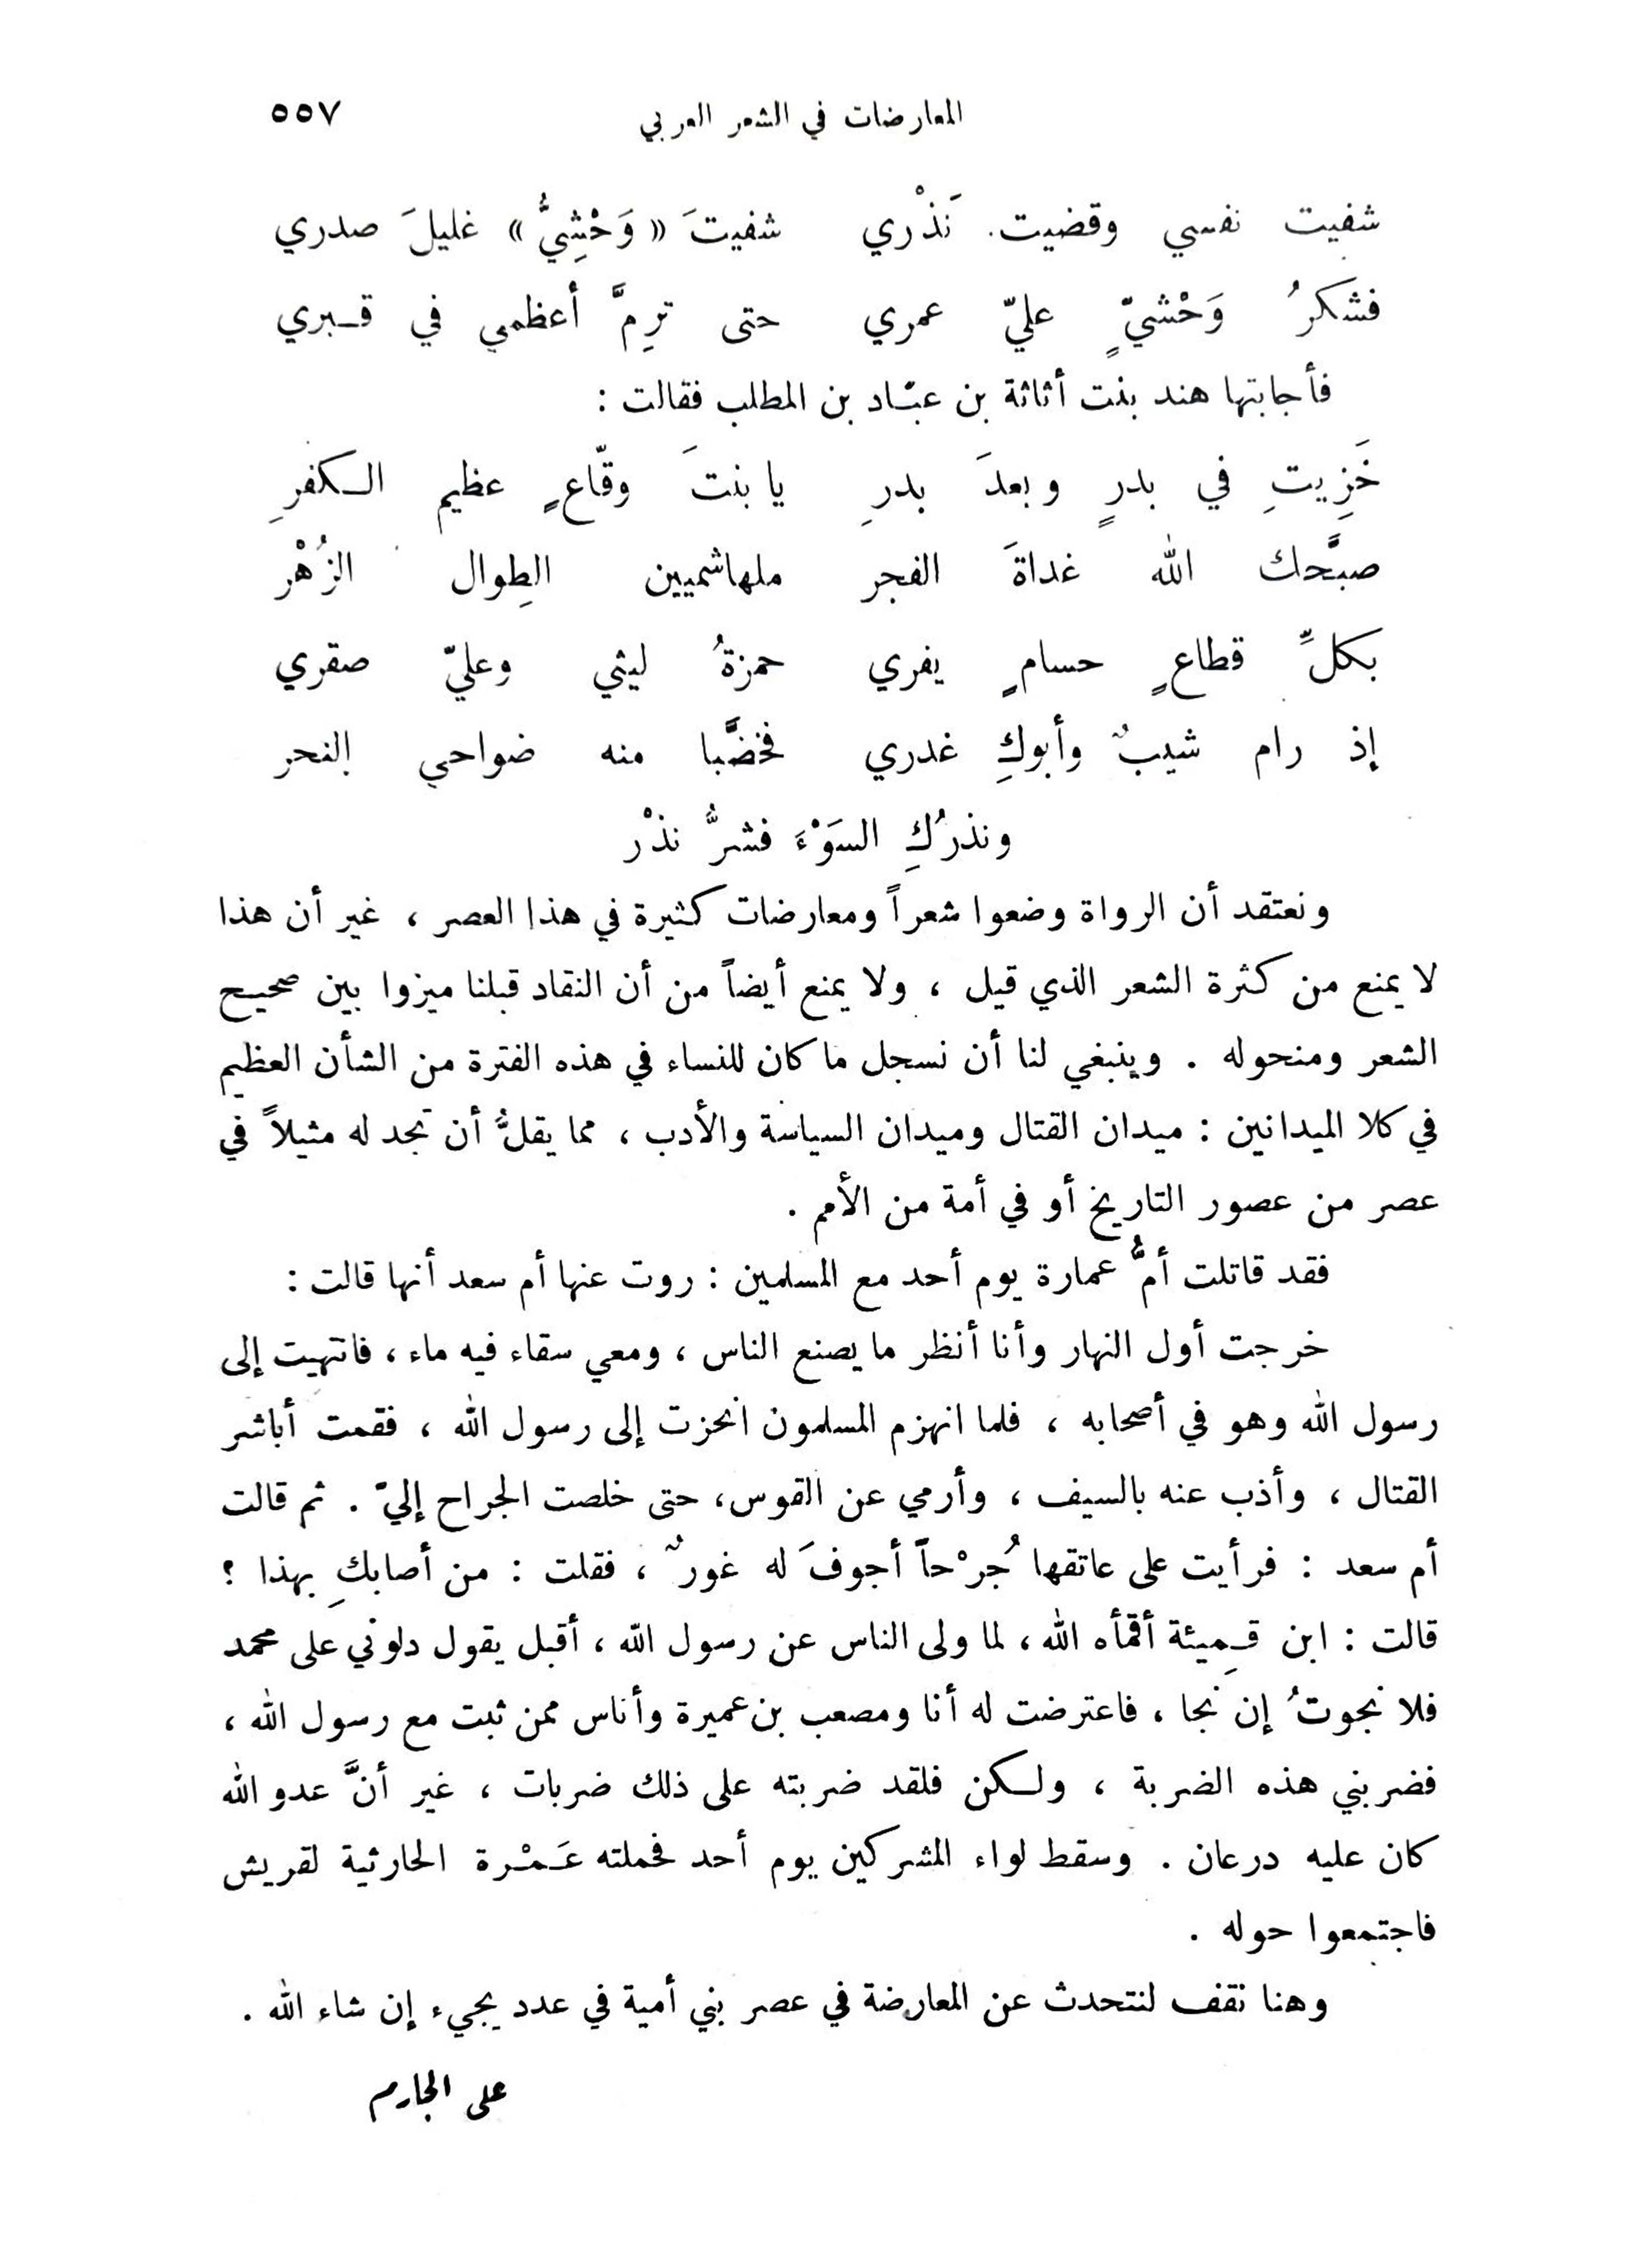 المعارضات في الشعر العربي ٥٥٧
شفيت نفسي وقضيت نَذْري شفيتَ «وَحْشِيُّ» غليلَ صدري
فشكرُ وَحْشيٍّ عليّ عمري حتى ترِمَّ أعظمي في قبري
فأجابتها هند بنت أثاثة بن عبّاد بن المطلب فقالت :
خَزِيتِ في بدرٍ وبعدَ بدرِ يا بنتَ وقّاعٍ عظيم الكفرِ
صبَّحك الله غداةَ الفجر ملهاشميين الطِوال الزُهْر
بكلِّ قطاعٍ حسامٍ يفري حمزةُ ليثي وعليّ صقري
إذ رام شيبٌ وأبوكِ غدري فخضَّبا منه ضواحي النحر
ونذرُكِ السَوْءَ فشرُّ نذْر
ونعتقد أن الرواة وضعوا شعراً ومعارضات كثيرة في هذا العصر ، غير أن هذا
لا يمنع من كثرة الشعر الذي قيل ، ولا يمنع أيضاً من أن النقاد قبلنا ميزوا بين صحيح
الشعر ومنحوله . وينبغي لنا أن نسجل ما كان للنساء في هذه الفترة من الشأن العظيم
في كلا الميدانين : ميدان القتال وميدان السياسة والأدب ، مما يقلُّ أن تجد له مثيلاً في
عصر من عصور التاريخ أو في أمة من الأمم .
فقد قاتلت أمُّ عمارة يوم أحد مع المسلمين : روت عنها أم سعد أنها قالت :
خرجت أول النهار وأنا أنظر ما يصنع الناس ، ومعي سقاء فيه ماء ، فانتهيت إلى
رسول الله وهو في أصحابه ، فلما انهزم المسلمون انحزت إلى رسول الله ، فقمت أباشر
القتال ، وأذب عنه بالسيف ، وأرمي عن القوس، حتى خلصت الجراح إليّ . ثم قالت
أم سعد : فرأيت على عاتقها جُرْحاً أجوفَ له غورٌ ، فقلت : من أصابكِ بهذا ؟
قالت : ابن قمِيئة أقمأه الله ، لما ولى الناس عن رسول الله ، أقبل يقول دلوني على محمد
فلا نجوتُ إن نجا ، فاعترضت له أنا ومصعب بن عميرة وأناس ممن ثبت مع رسول الله ،
فضربني هذه الضربة ، ولكن فلقد ضربته على ذلك ضربات ، غير أنَّ عدو الله
كان عليه درعان . وسقط لواء المشركين يوم أحد فحملته عَمْرة الحارثية لقريش
فاجتمعوا حوله .
وهنا نقف لنتحدث عن المعارضة في عصر بني أمية في عدد يجيء إن شاء الله .
على الجارم